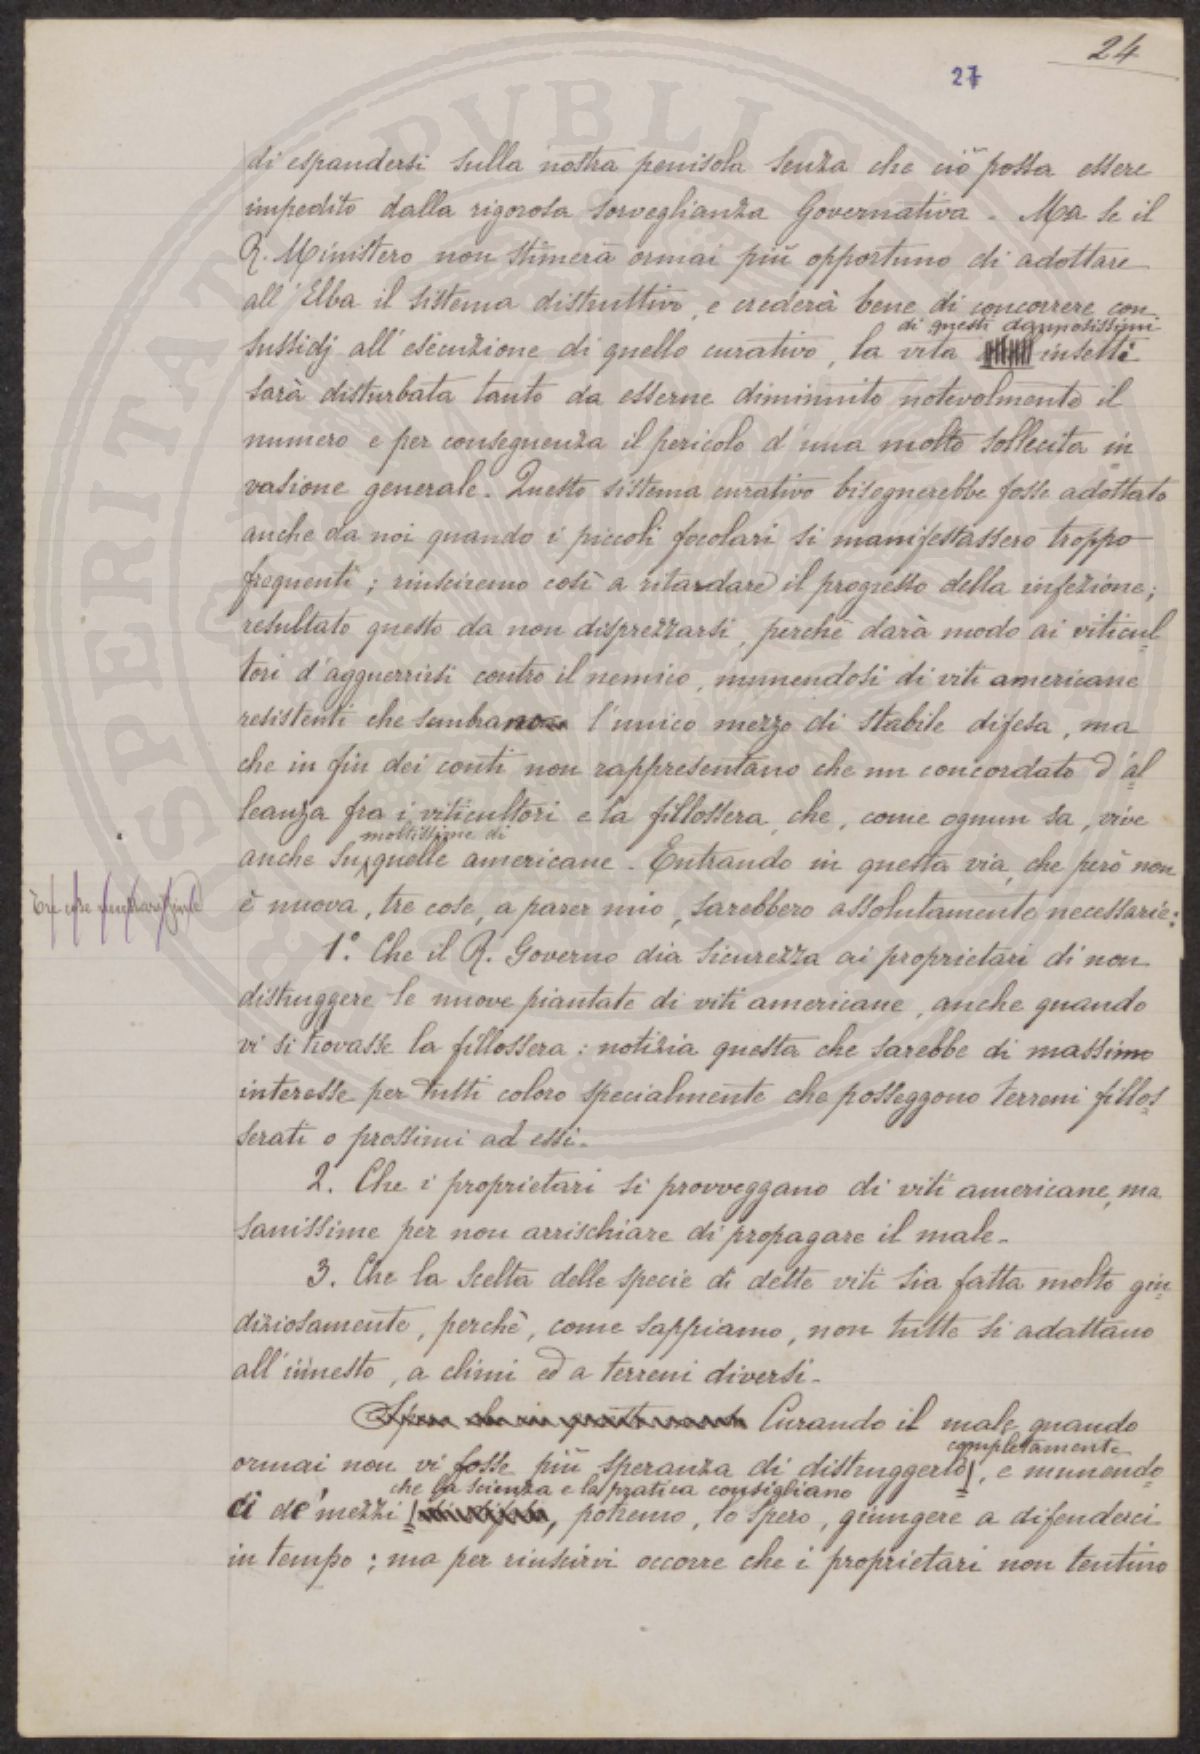 24
27
di espandersi sulla nostra penisola senza che ciò possa essere
impedito dalla rigorosa sorveglianza Governativa. Ma se il
R. Ministero non stimerà ormai più opportuno di adottare
all'Elba il sistema distruttivo, e crederà bene di concorrere con
di questi dannosissimi
sussidj all'esecuzione di quello curativo, la vita insetti
sarà disturbata tanto da esserne diminuito notevolmente il
numero e per conseguenza il pericolo d'una molto sollecita in
vasione generale. Questo sistema curativo bisognerebbe fosse adottato
anche da noi quando i piccoli focolari si manifestassero troppo
frequenti; riusciremo così a ritardare il progresso della infezione;
resultato questo da non disprezzarsi, perchè darà modo ai viticul
tori d'agguerrirsi contro il nemico, munendosi di viti americane
resistenti che sembrano l'unico mezzo di stabile difesa, ma
che in fin dei conti non rappresentano che un concordato d'al
leanza fra i viticultori e la fillossera, che, come ognun sa, vive
moltissime di
anche su quelle americane. Entrando in questa via, che però non
Tre cose
è nuova, tre cose, a parer mio, sarebbero assolutamente necessarie:
1.° Che il R. Governo dia sicurezza ai proprietari di non
distruggere le nuove piantate di viti americane, anche quando
vi si trovasse la fillossera: notizia questa che sarebbe di massimo
interesse per tutti coloro specialmente che posseggono terreni fillos
serati o prossimi ad essi.
2. Che i proprietari si provveggano di viti americane, ma
sanissime per non arrischiare di propagare il male.
3. Che la scelta delle specie di dette viti sia fatta molto giu
diziosamente, perchè, come sappiamo, non tutte si adattano
all'innesto, a climi ed a terreni diversi.
Curando il male quando
completamente
ormai non vi fosse più speranza di distruggerlo, e munendo
che la scienza e la pratica consigliano
ci de' mezzi, potremo, lo spero, giungere a difenderci
in tempo; ma per riuscirvi occorre che i proprietari non tentino
PROSPERITATI PUBLICAE